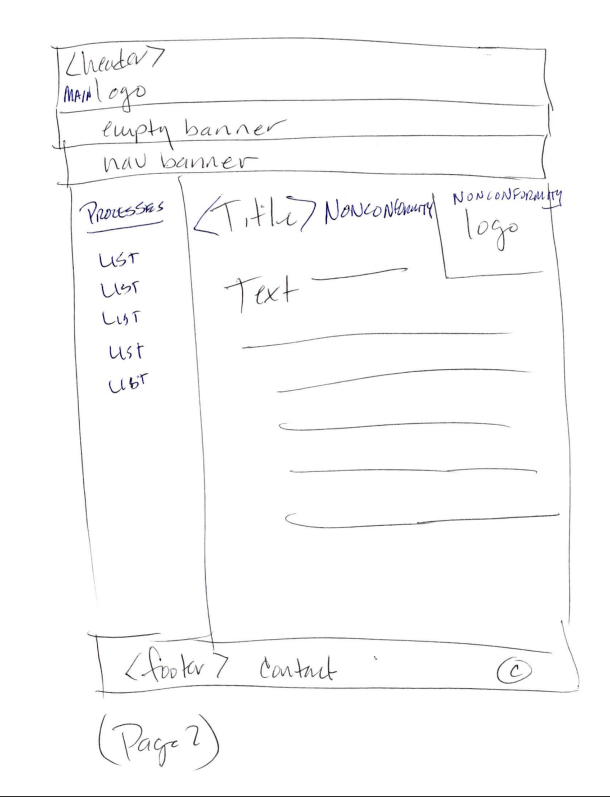 <header>
MAIN logo
empty banner
nav banner
PROCESSES
LIST
LIST
LIST
LIST
LIST
<Title> NONCONFORMITY
NONCONFORMITY
logo
Text
<footer> Contact ©
(Page 2)